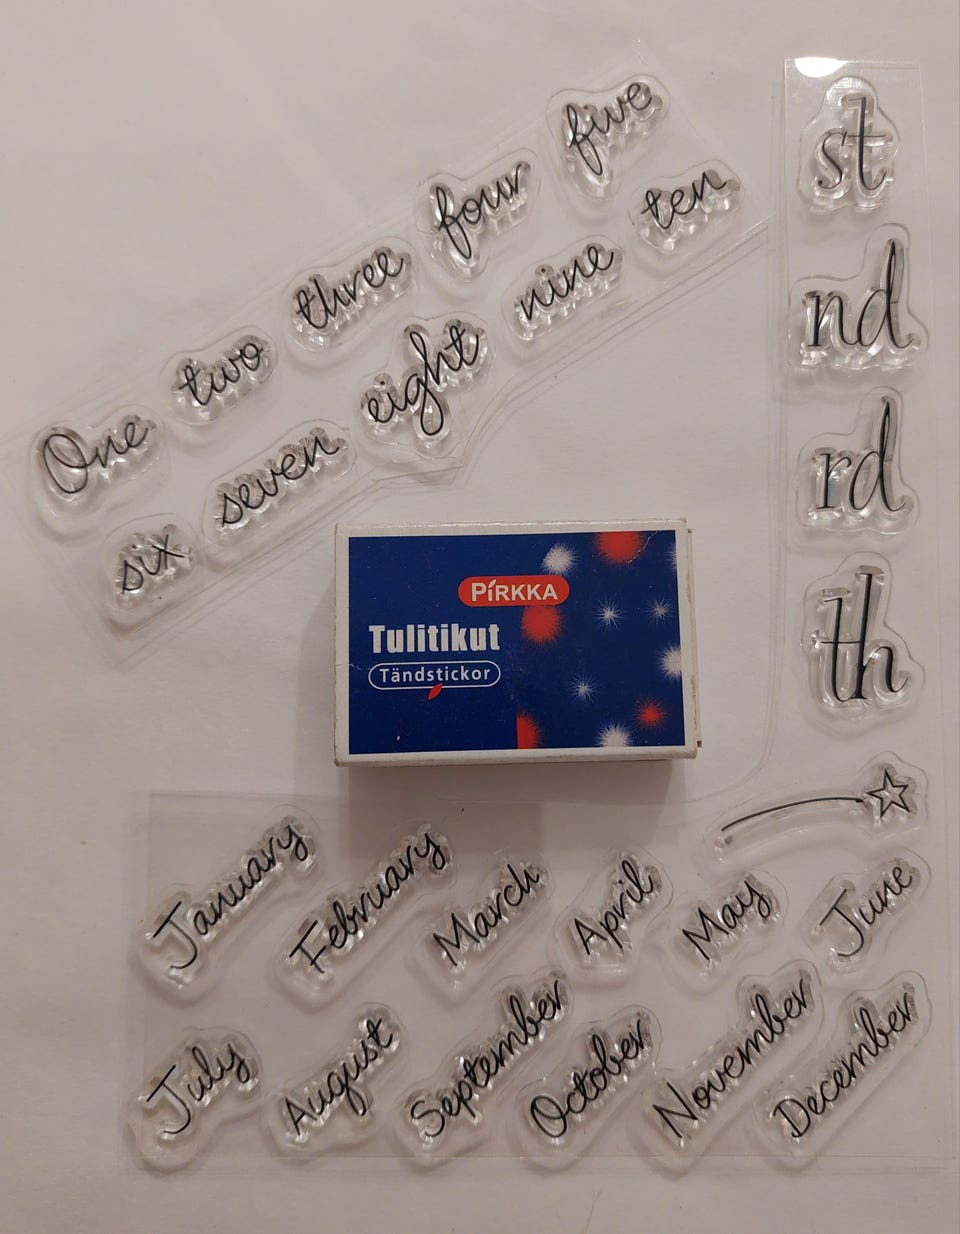 One two three four five
six seven eight nine ten
st
nd
rd
th
PIRKKA
Tulitikut
Tändstickor
January February March April May June
July August September October November December